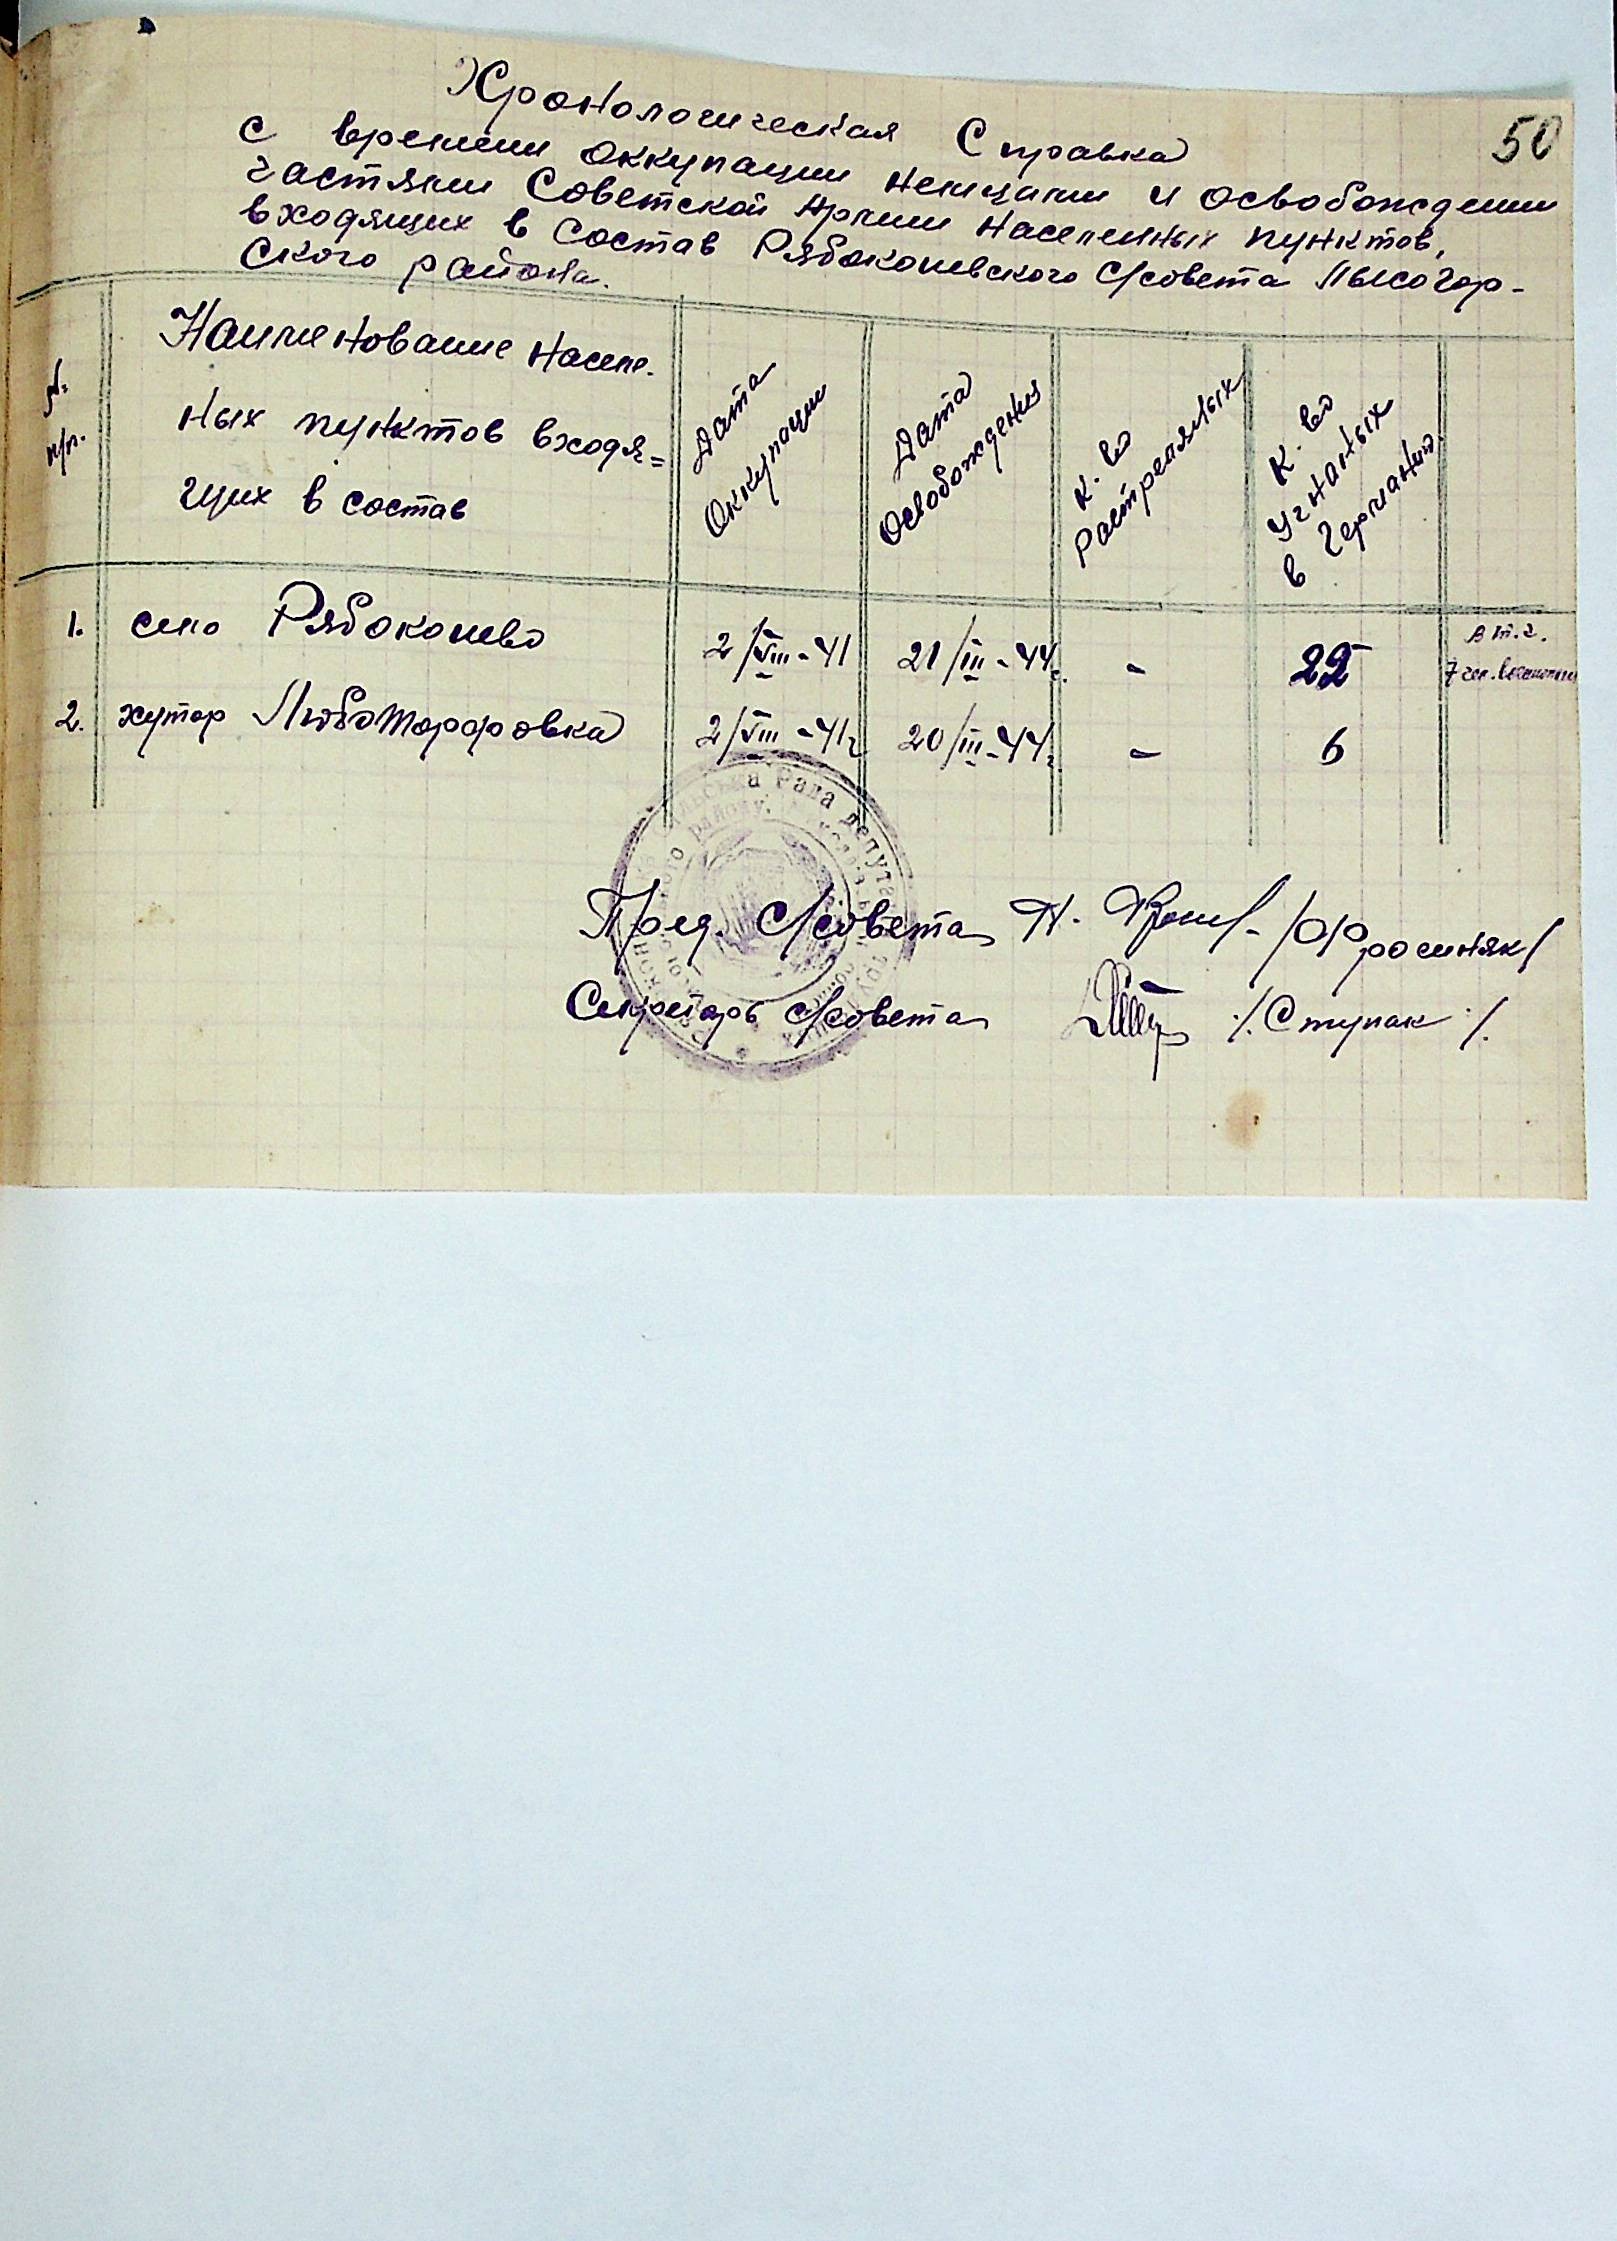 50
Хронологическая Справка
с времени оккупации немцами и освобождении
частями Советской Армии населенных пунктов,
входящих в состав Рябоконевского с/совета Лысогор-
ского района.
№ п/п.
Наименование населе.
ных пунктов входя=
щих в состав
Дата Оккупации
Дата Освобождения
К-во Растреляных
К-во Угнаных в Германию
1. село Рябоконево 2/VIII-41 21/III-44г. - 22 в т.ч.
7 чел.
2. хутор 2/VIII-41г 20/III-44г. - 6
Пред. с/совета
Секретарь с/совета /.Ступак./